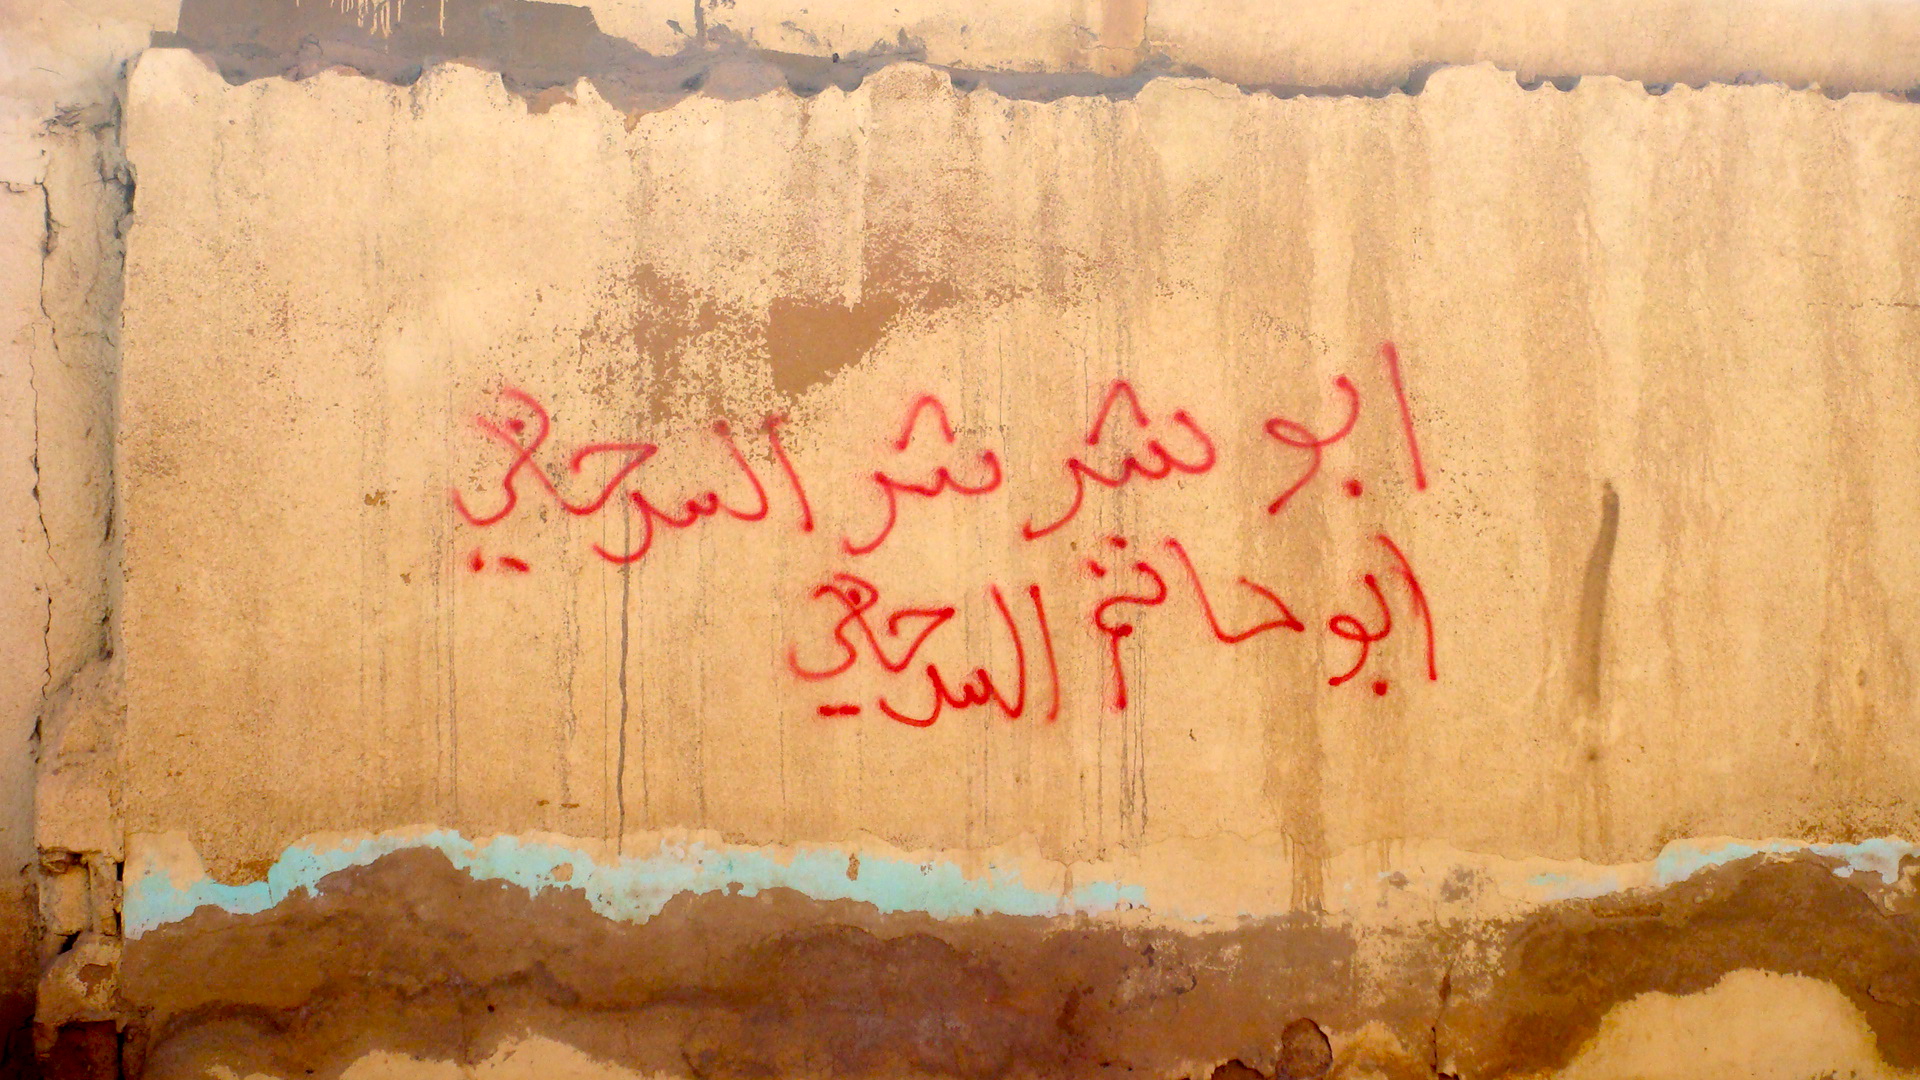 ابو شر شر السرحني
ابو حاتم السرحني